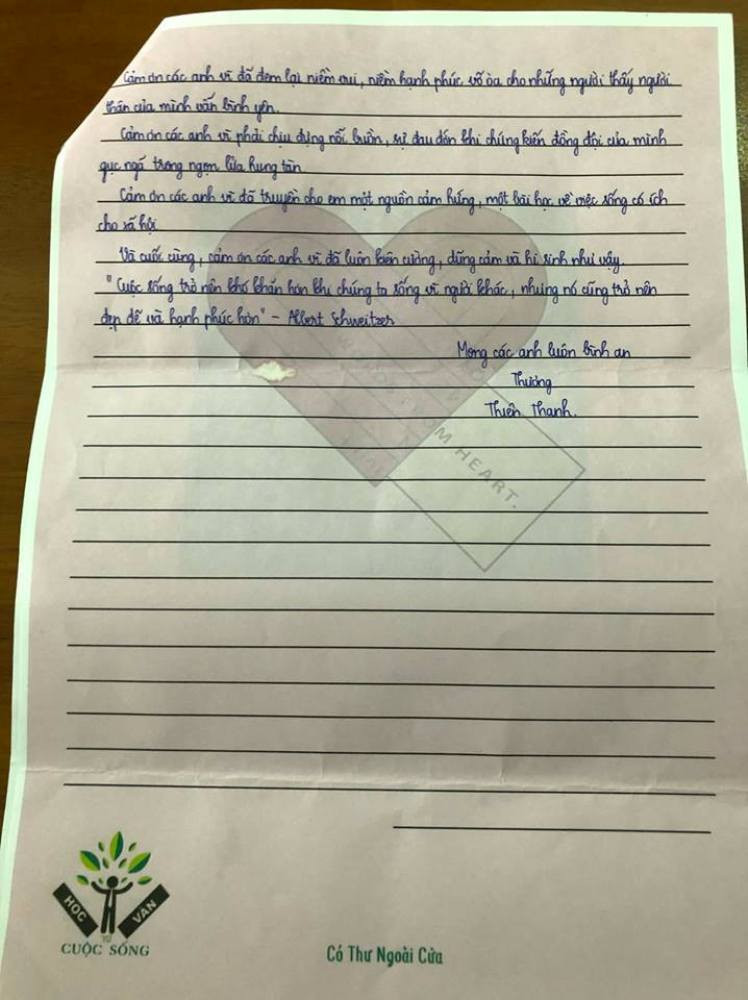 Cảm ơn các anh vì đã đem lại niềm vui, niềm hạnh phúc vỡ òa cho những người thấy người
thân của mình vẫn bình yên.
Cảm ơn các anh vì phải chịu đựng nỗi buồn, sự đau đớn khi chứng kiến đồng đội của mình
gục ngã trong ngọn lửa hung tàn
Cảm ơn các anh vì đã truyền cho em một nguồn cảm hứng, một bài học về việc sống có ích
cho xã hội
Và cuối cùng, cảm ơn các anh vì đã luôn kiên cường, dũng cảm và hi sinh như vậy.
"Cuộc sống trở nên khó khăn hơn khi chúng ta sống vì người khác, nhưng nó cũng trở nên
đẹp đẽ và hạnh phúc hơn" - Albert Schweitzer
Mong các anh luôn bình an
Thương
Thiên Thanh.
OM HEART.
HỌC VĂN
CUỘC SỐNG
Có Thư Ngoài Cửa